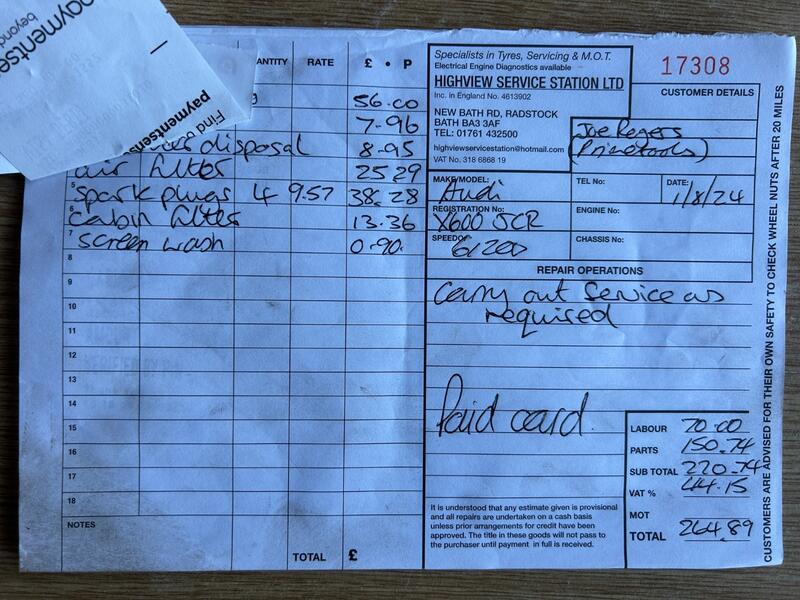 paymentsense
beyond
paymentsense
Find ou
RATE £ • P
56.00
7-96
disposal 8-95
air filter 25 29
5 spark plugs 4 9.57 38.28
6 cabin filter 13.36
7 screen wash 0.90
8
9
10
11
12
13
14
15
16
17
18
NOTES
TOTAL £
Specialists in Tyres, Servicing & M.O.T.
Electrical Engine Diagnostics available
HIGHVIEW SERVICE STATION LTD
Inc. in England No. 4613902
NEW BATH RD, RADSTOCK
BATH BA3 3AF
TEL: 01761 432500
highviewservicestation@hotmail.com
VAT No. 318 6868 19
17308
CUSTOMER DETAILS
Joe Rogers
MAKE/MODEL: Audi
TEL No:
DATE: 1/8/24
REGISTRATION No: X600 JCR
ENGINE No:
SPEEDO:
CHASSIS No:
REPAIR OPERATIONS
Carry out Service as
required
Paid card.
LABOUR 70.00
PARTS 150.74
SUB TOTAL 220.74
VAT % 44.15
MOT
TOTAL 264.89
It is understood that any estimate given is provisional
and all repairs are undertaken on a cash basis
unless prior arrangements for credit have been
approved. The title in these goods will not pass to
the purchaser until payment in full is received.
CUSTOMERS ARE ADVISED FOR THEIR OWN SAFETY TO CHECK WHEEL NUTS AFTER 20 MILES